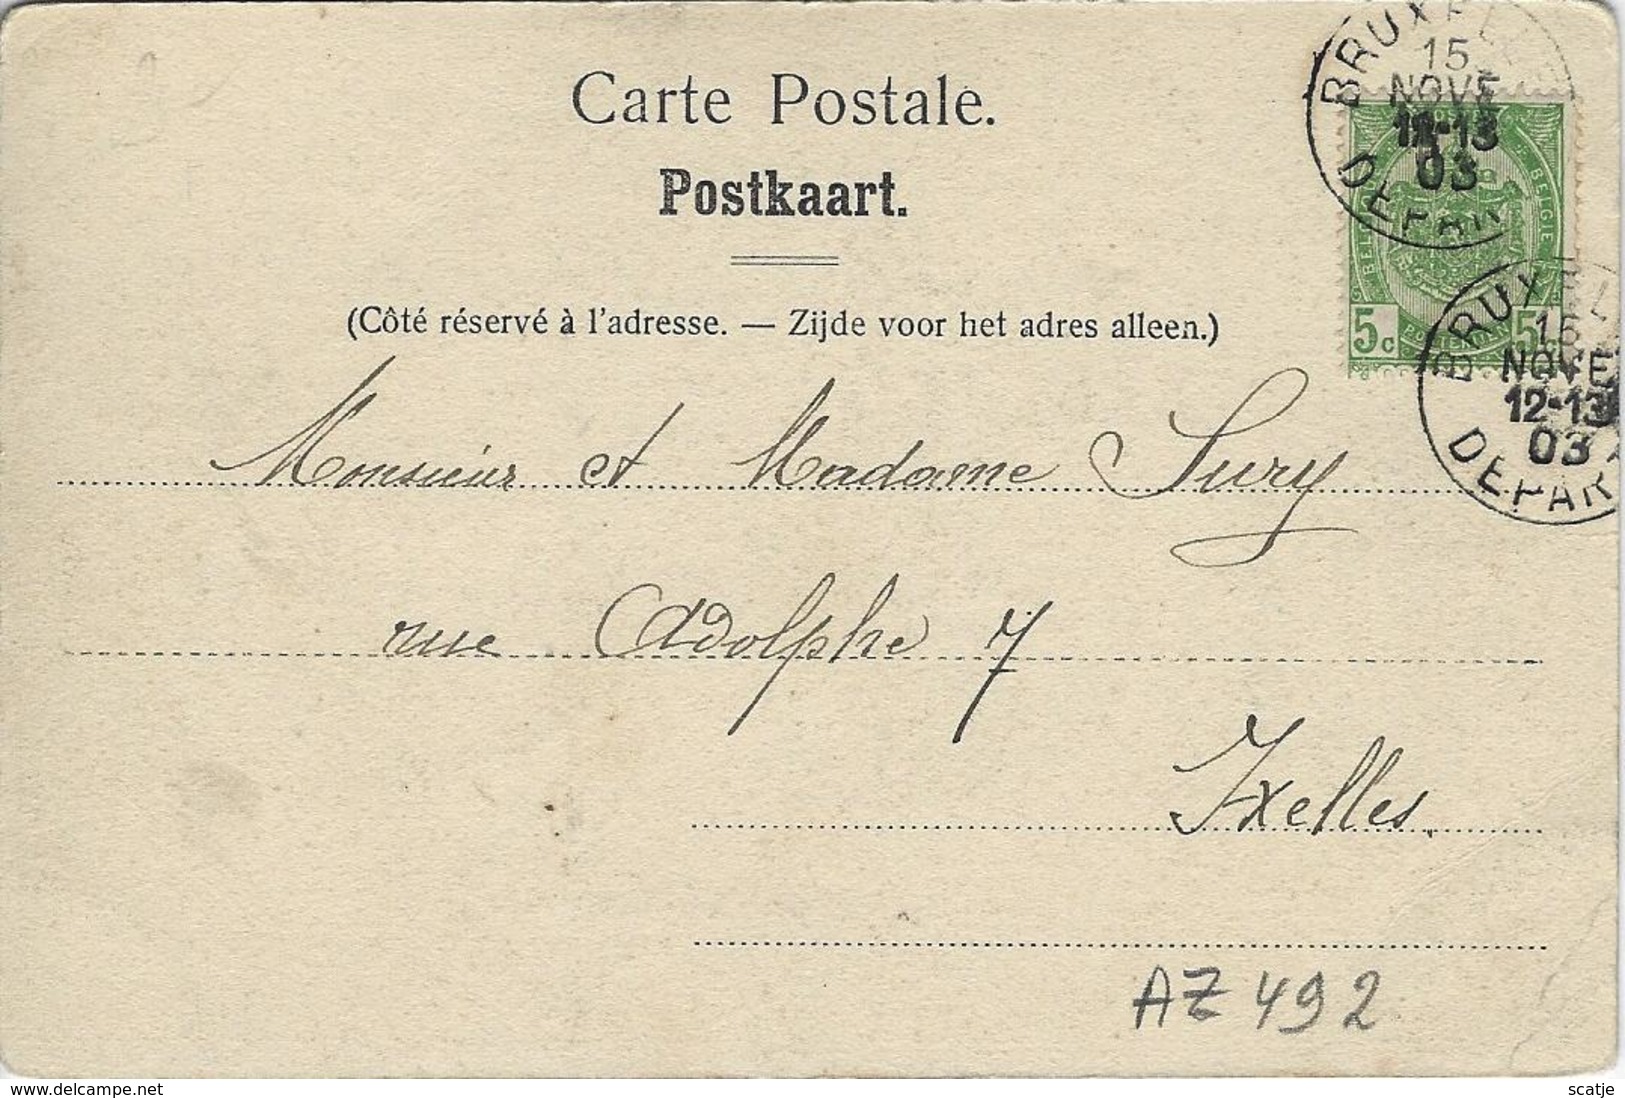 Carte Postale.
Postkaart.
(Côté réservé à l'adresse. — Zijde voor het adres alleen.)
BRUXELLES
15
NOVE
13
03
DEPART
BELGIE
5c 5c
BRUXEL
16
NOVE
12-13
03
DEPAR
Monsieur et Madame Sury
rue Adolphe 7
Ixelles.
AZ 492
www.delcampe.net
scatje